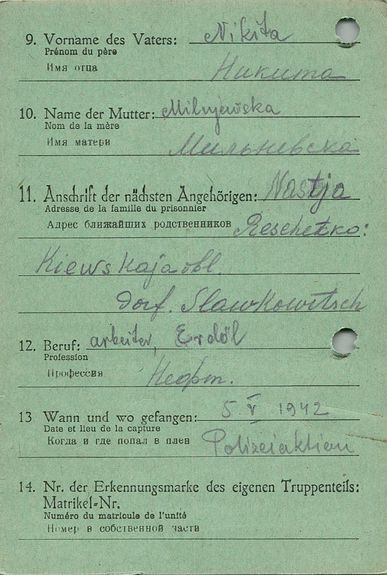 9. Vorname des Vaters: Nikita
Prénom du père
Имя отца Никита
10. Name der Mutter: Milnjewska
Nom de la mère
Имя матери Мильневска
11. Anschrift der nächsten Angehörigen: Nastja
Adresse de la famille du prisonnier
Адрес ближайших родственников Reschetko:
Kiewskaja obl.
Dorf. Slawkowitsch
12. Beruf: arbeiter, Erdöl
Profession
Профессия Нефт.
13 Wann und wo gefangen: 5 V 1942
Date et lieu de la capture
Когда и где попал в плен Polizeiaktion
14. Nr. der Erkennungsmarke des eigenen Truppenteils:
Matrikel-Nr.
Numéro du matricule de l'unité
Номер в собственной части